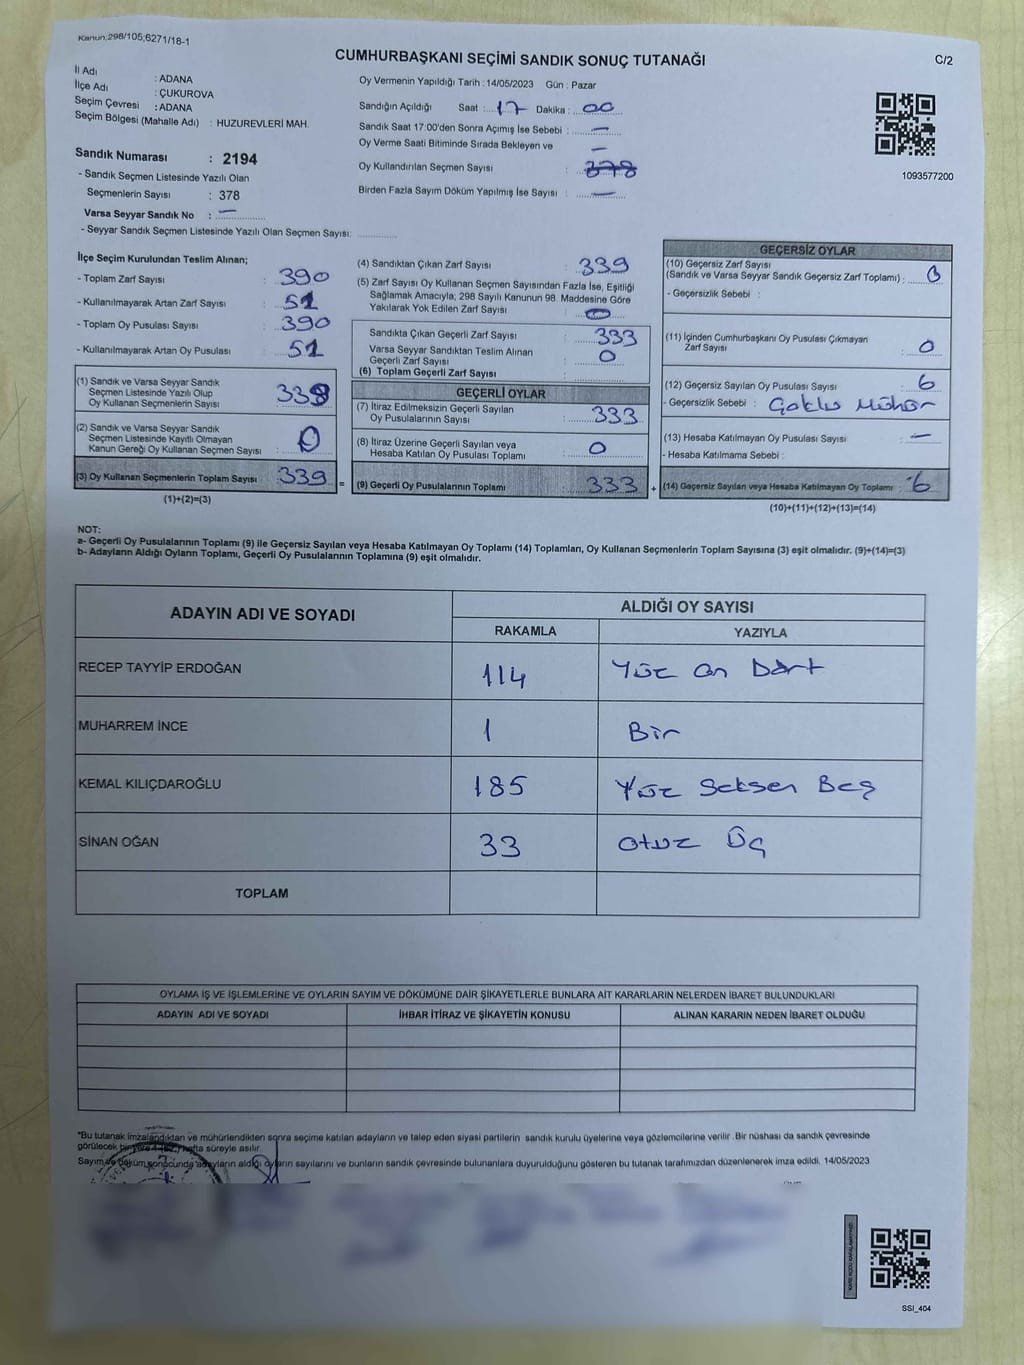 Kanun;298/105;6271/18-1
CUMHURBAŞKANI SEÇİMİ SANDIK SONUÇ TUTANAĞI
C/2
İl Adı : ADANA
İlçe Adı : ÇUKUROVA
Seçim Çevresi : ADANA
Seçim Bölgesi (Mahalle Adı) : HUZUREVLERİ MAH.
Sandık Numarası : 2194
- Sandık Seçmen Listesinde Yazılı Olan
Seçmenlerin Sayısı : 378
Varsa Seyyar Sandık No : —
- Seyyar Sandık Seçmen Listesinde Yazılı Olan Seçmen Sayısı:
Oy Vermenin Yapıldığı Tarih : 14/05/2023 Gün : Pazar
Sandığın Açıldığı Saat : 17 Dakika : 00
Sandık Saat 17:00'den Sonra Açımış İse Sebebi : —
Oy Verme Saati Bitiminde Sırada Bekleyen ve —
Oy Kullandırılan Seçmen Sayısı : 378
Birden Fazla Sayım Döküm Yapılmış İse Sayısı : —
1093577200
İlçe Seçim Kurulundan Teslim Alınan;
- Toplam Zarf Sayısı : 390
- Kullanılmayarak Artan Zarf Sayısı : 51
- Toplam Oy Pusulası Sayısı : 390
- Kullanılmayarak Artan Oy Pusulası : 51
(1) Sandık ve Varsa Seyyar Sandık
Seçmen Listesinde Yazılı Olup
Oy Kullanan Seçmenlerin Sayısı : 339
(2) Sandık ve Varsa Seyyar Sandık
Seçmen Listesinde Kayıtlı Olmayan
Kanun Gereği Oy Kullanan Seçmen Sayısı : 0
(3) Oy Kullanan Seçmenlerin Toplam Sayısı : 339 =
(1)+(2)=(3)
(4) Sandıktan Çıkan Zarf Sayısı : 339
(5) Zarf Sayısı Oy Kullanan Seçmen Sayısından Fazla İse, Eşitliği
Sağlamak Amacıyla; 298 Sayılı Kanunun 98. Maddesine Göre
Yakılarak Yok Edilen Zarf Sayısı : 0
Sandıkta Çıkan Geçerli Zarf Sayısı : 333
Varsa Seyyar Sandıktan Teslim Alınan
Geçerli Zarf Sayısı : 0
(6) Toplam Geçerli Zarf Sayısı :
GEÇERLİ OYLAR
(7) İtiraz Edilmeksizin Geçerli Sayılan
Oy Pusulalarının Sayısı : 333
(8) İtiraz Üzerine Geçerli Sayılan veya
Hesaba Katılan Oy Pusulası Toplamı : 0
(9) Geçerli Oy Pusulalarının Toplamı : 333 +
GEÇERSİZ OYLAR
(10) Geçersiz Zarf Sayısı
(Sandık ve Varsa Seyyar Sandık Geçersiz Zarf Toplamı) : 0
- Geçersizlik Sebebi :
(11) İçinden Cumhurbaşkanı Oy Pusulası Çıkmayan
Zarf Sayısı : 0
(12) Geçersiz Sayılan Oy Pusulası Sayısı : 6
- Geçersizlik Sebebi : Çoklu Mühür
(13) Hesaba Katılmayan Oy Pusulası Sayısı : —
- Hesaba Katılmama Sebebi :
(14) Geçersiz Sayılan veya Hesaba Katılmayan Oy Toplamı : 6
(10)+(11)+(12)+(13)=(14)
NOT:
a- Geçerli Oy Pusulalarının Toplamı (9) ile Geçersiz Sayılan veya Hesaba Katılmayan Oy Toplamı (14) Toplamları, Oy Kullanan Seçmenlerin Toplam Sayısına (3) eşit olmalıdır. (9)+(14)=(3)
b- Adayların Aldığı Oyların Toplamı, Geçerli Oy Pusulalarının Toplamına (9) eşit olmalıdır.
ADAYIN ADI VE SOYADI ALDIĞI OY SAYISI
RAKAMLA YAZIYLA
RECEP TAYYİP ERDOĞAN 114 Yüz on Dört
MUHARREM İNCE 1 Bir
KEMAL KILIÇDAROĞLU 185 Yüz Seksen Beş
SİNAN OĞAN 33 Otuz Üç
TOPLAM
OYLAMA İŞ VE İŞLEMLERİNE VE OYLARIN SAYIM VE DÖKÜMÜNE DAİR ŞİKAYETLERLE BUNLARA AİT KARARLARIN NELERDEN İBARET BULUNDUKLARI
ADAYIN ADI VE SOYADI İHBAR İTİRAZ VE ŞİKAYETİN KONUSU ALINAN KARARIN NEDEN İBARET OLDUĞU
*Bu tutanak imzalandıktan ve mühürlendikten sonra seçime katılan adayların ve talep eden siyasi partilerin sandık kurulu üyelerine veya gözlemcilerine verilir. Bir nüshası da sandık çevresinde
görülecek bir yere hafta süreyle asılır.
Sayım ve döküm sonucunda adayların aldığı oyların sayılarını ve bunların sandık çevresinde bulunanlara duyurulduğunu gösteren bu tutanak tarafımızdan düzenlenerek imza edildi. 14/05/2023
KARE KODU KARALAMAYINIZ!
SSI_404